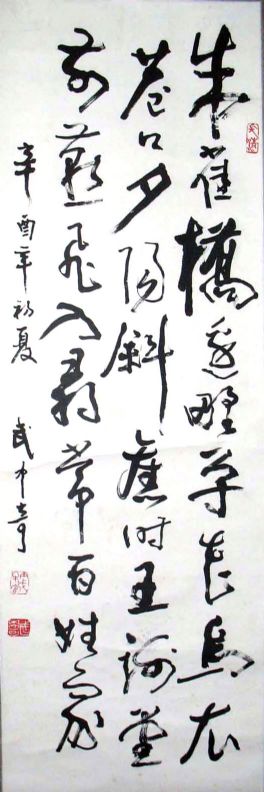 朱雀橋邊野草花烏衣
巷口夕陽斜舊時王謝堂
前燕飛入尋常百姓家
辛酉年初夏 武中奇